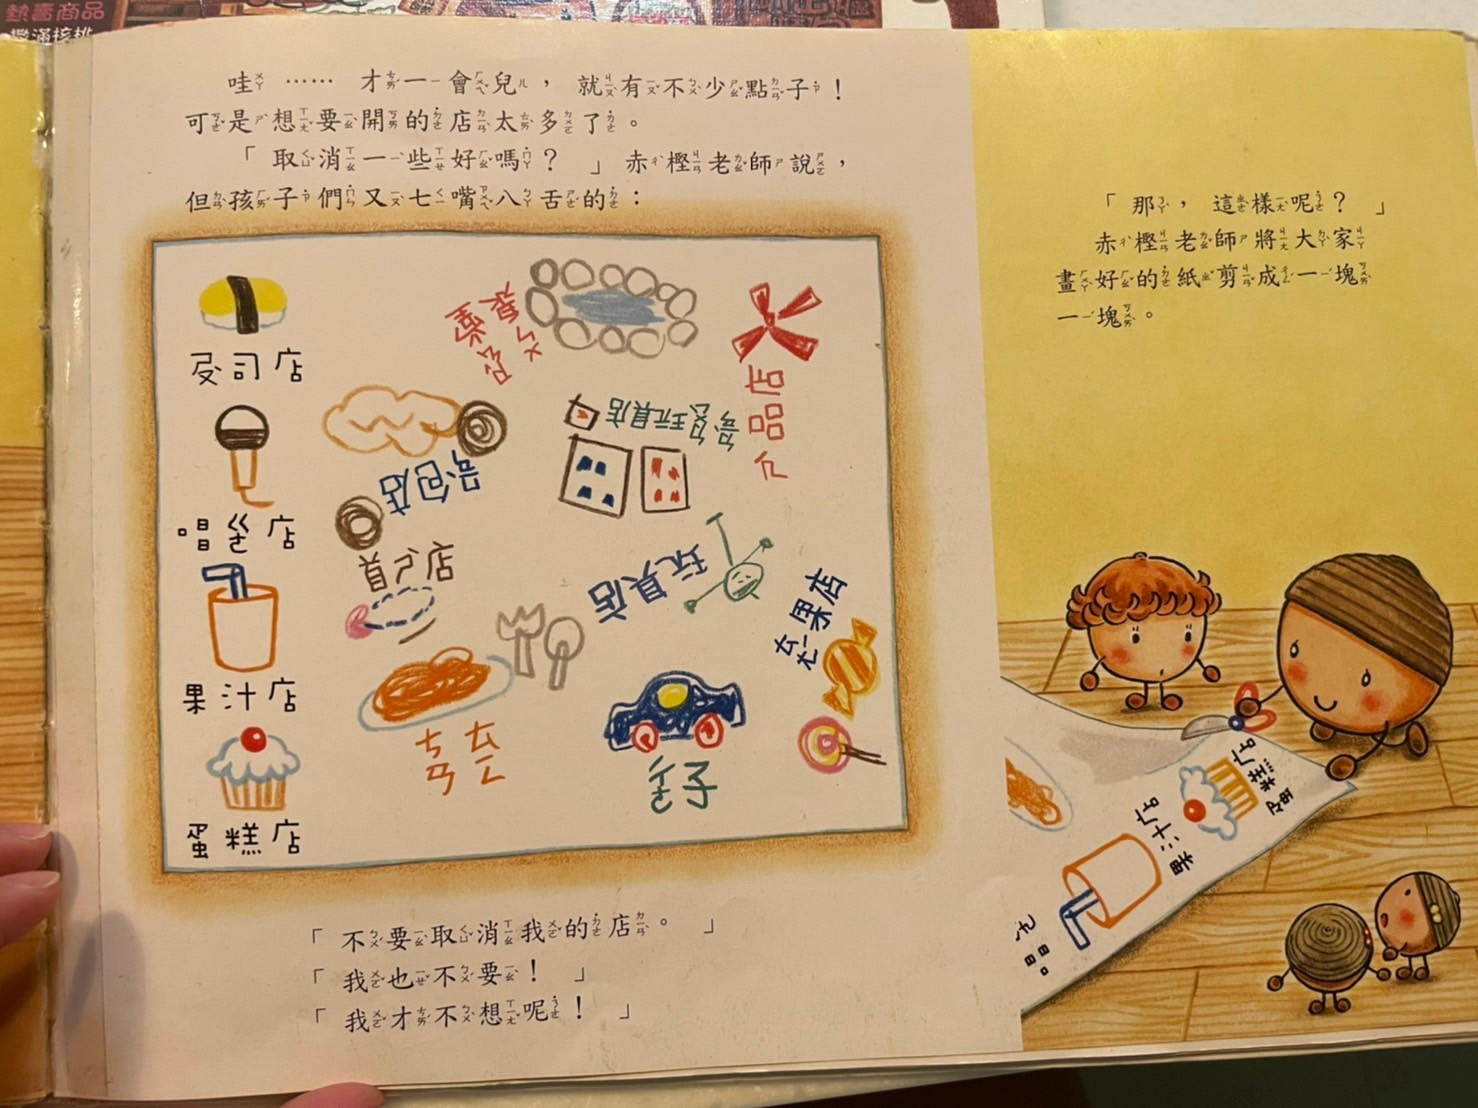 熱賣商品
哇 …… 才一會兒，就有不少點子！
可是想要開的店太多了。
「取消一些好嗎？」赤樫老師說，
但孩子們又七嘴八舌的：
司店
唱ㄍㄜ店
果汁店
蛋糕店
包店
玩具店
玩具店
品店
首ㄕ店
ㄊㄤˊ果店
「不要取消我的店。」
「我也不要！」
「我才不想呢！」
「那，這樣呢？」
赤樫老師將大家
畫好的紙剪成一塊
一塊。